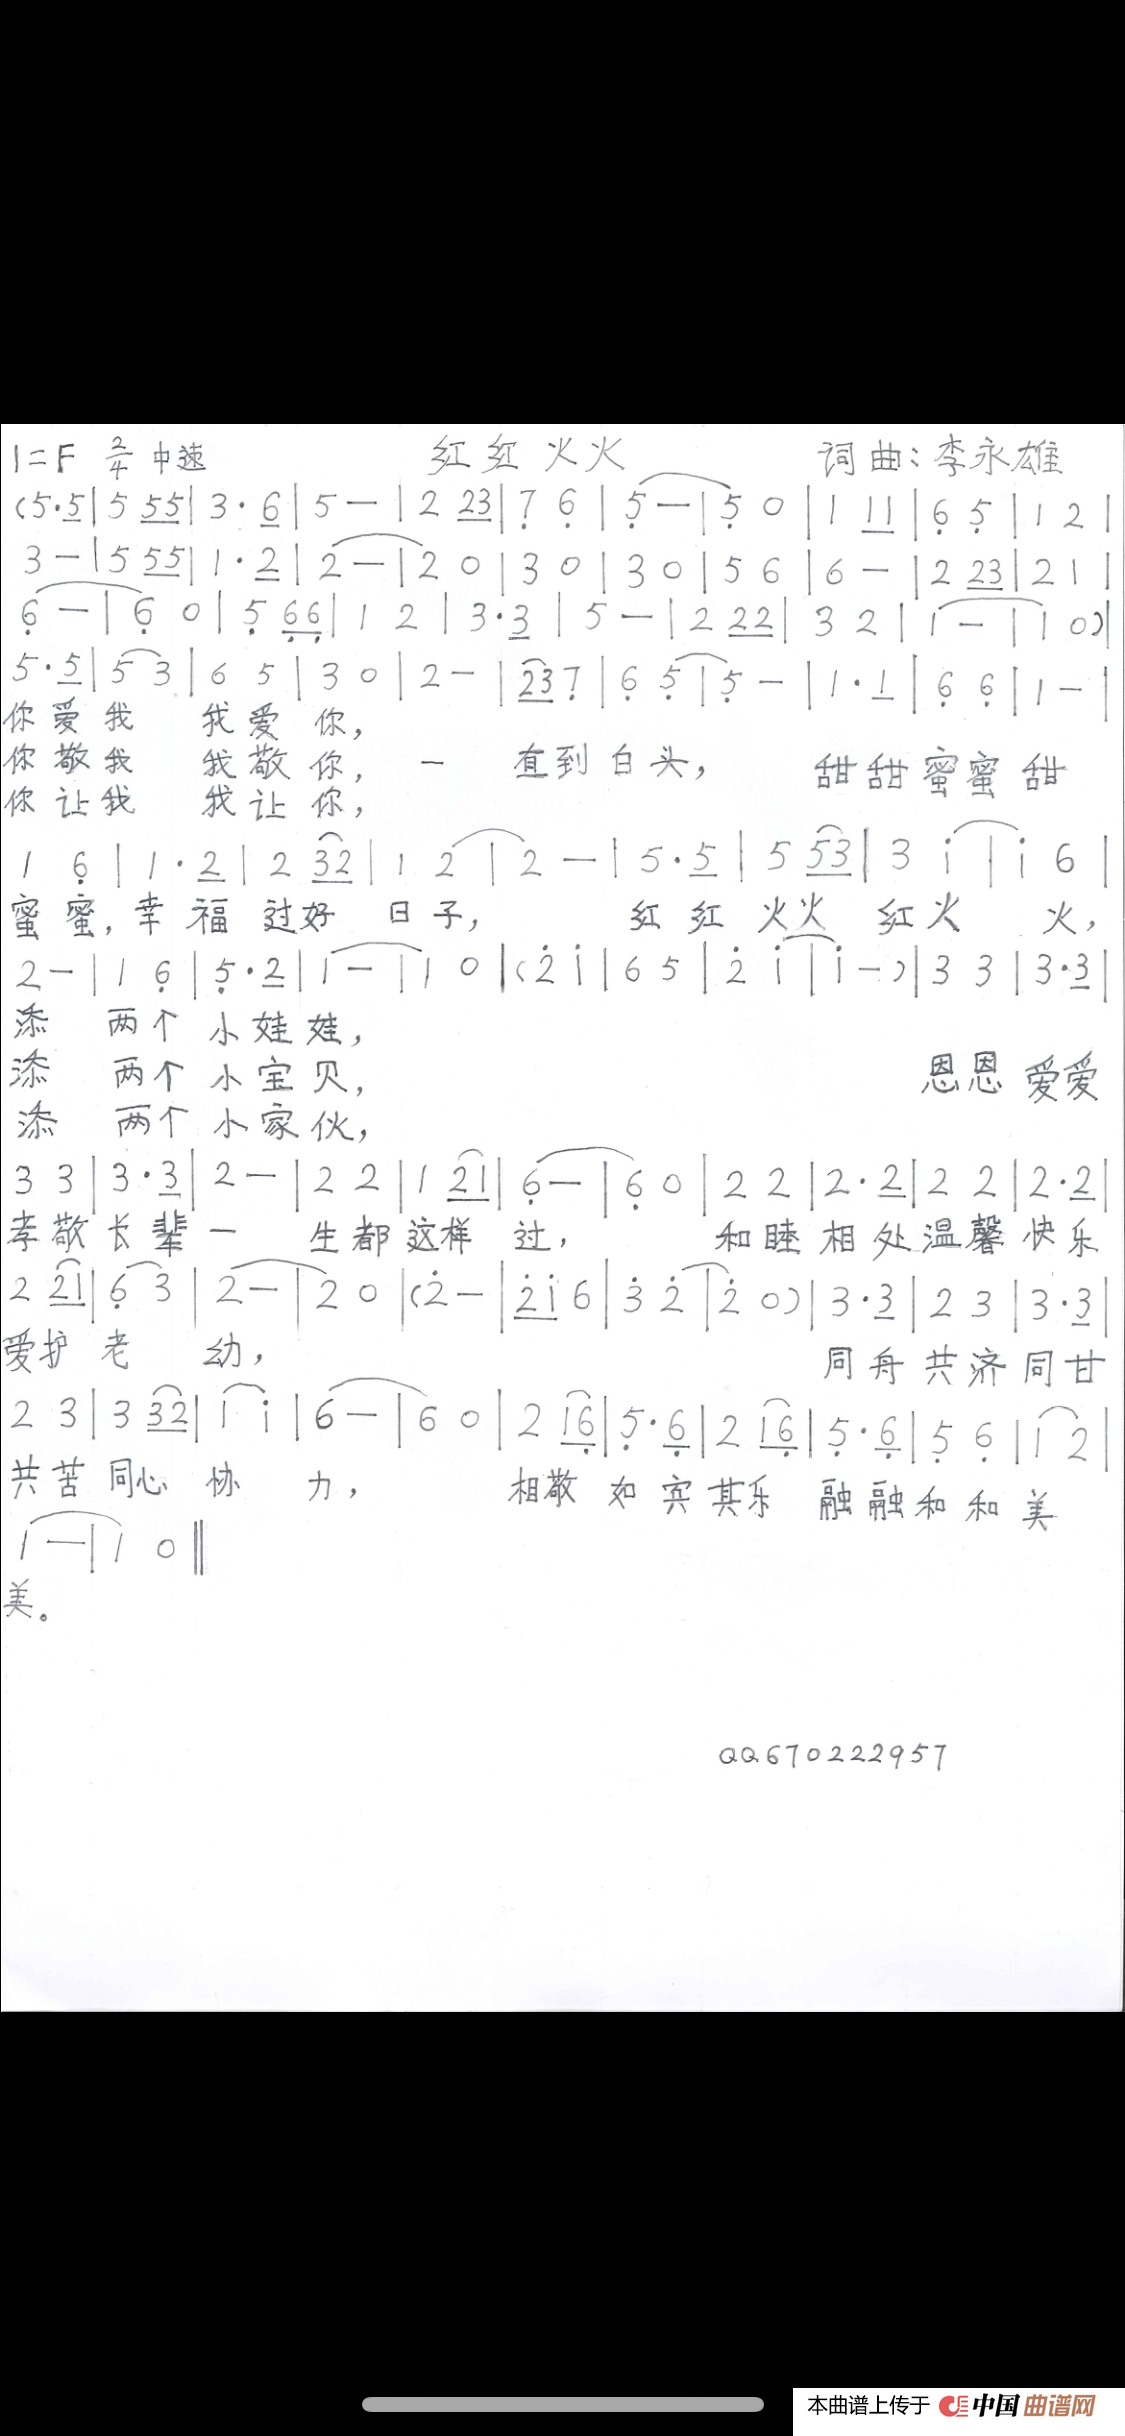 1=F 2/4 中速 红红火火 词曲:李永雄
(5·5|5 55|3·6|5 —|2 23|7 6|5 —|5 0|1 11|6 5|1 2|
3 —|5 55|1·2|2 —|2 0|3 0|3 0|5 6|6 —|2 23|2 1|
6 —|6 0|5 66|1 2|3·3|5 —|2 22|3 2|1 —|1 0)|
5·5|5 3|6 5|3 0|2 —|23 7|6 5|5 —|1·1|6 6|1 —|
你爱我 我爱你,
你敬我 我敬你, 一 直到白头, 甜甜蜜蜜甜
你让我 我让你,
1 6|1·2|2 32|1 2|2 —|5·5|5 53|3 i|i 6|
蜜蜜,幸福过好 日子, 红红火火 红火 火,
2 —|1 6|5·2|1 —|1 0|(2 i|6 5|2 i|i —)|3 3|3·3|
添 两个小娃娃,
添 两个小宝贝, 恩恩爱爱
添 两个小家伙,
3 3|3·3|2 —|2 2|1 21|6 —|6 0|2 2|2·2|2 2|2·2|
孝敬长辈一 生都这样 过, 和睦相处温馨快乐
2 21|6 3|2 —|2 0|(2 —|2i 6|3 2|2 0)|3·3|2 3|3·3|
爱护老 幼, 同舟共济同甘
2 3|3 32|1 i|6 —|6 0|2 16|5·6|2 16|5·6|5 6|1 2|
共苦同心协 力, 相敬如宾其乐融融和和美
1 —|1 0‖
美。
QQ670222957
本曲谱上传于 中国曲谱网